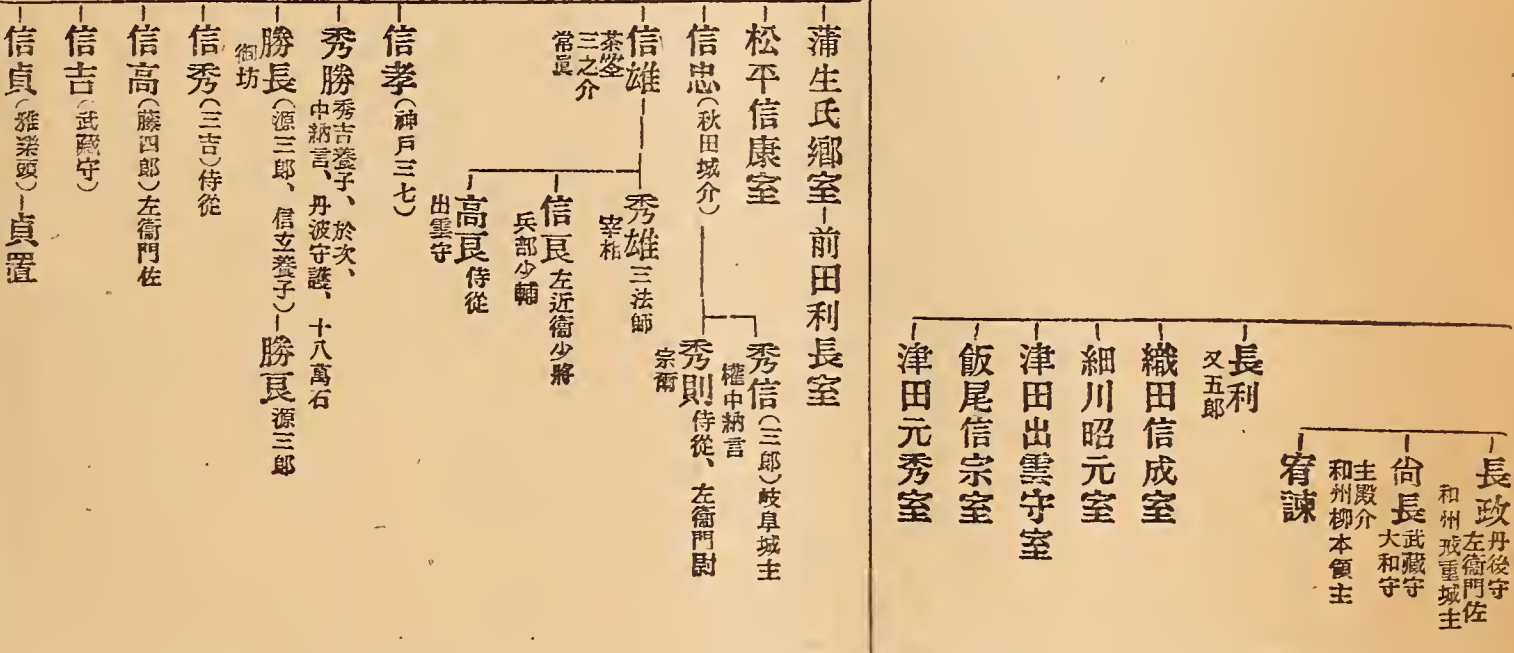 長政 丹後守
左衞門佐
和州戒重城主
尙長 武藏守
大和守
主殿介
和州柳本領主
宥諫
長利
又五郎
織田信成室
細川昭元室
津田出雲守室
飯尾信宗室
津田元秀室
蒲生氏鄕室―前田利長室
松平信康室
信忠(秋田城介)
秀信(三郎)岐阜城主
權中納言
秀則 侍從、左衞門尉
宗爾
信雄
茶筌
三之介
常眞
秀雄 三法師
宰相
信良 左近衞少將
兵部少輔
高良 侍從
出雲守
信孝(神戸三七)
秀勝 秀吉養子、於次、
中納言、丹波守護、十八萬石
勝長(源三郎、信立養子)―勝良 源三郎
御坊
信秀(三吉)侍從
信高(藤四郎)左衞門佐
信吉(武藏守)
信貞(雅樂頭)―貞置